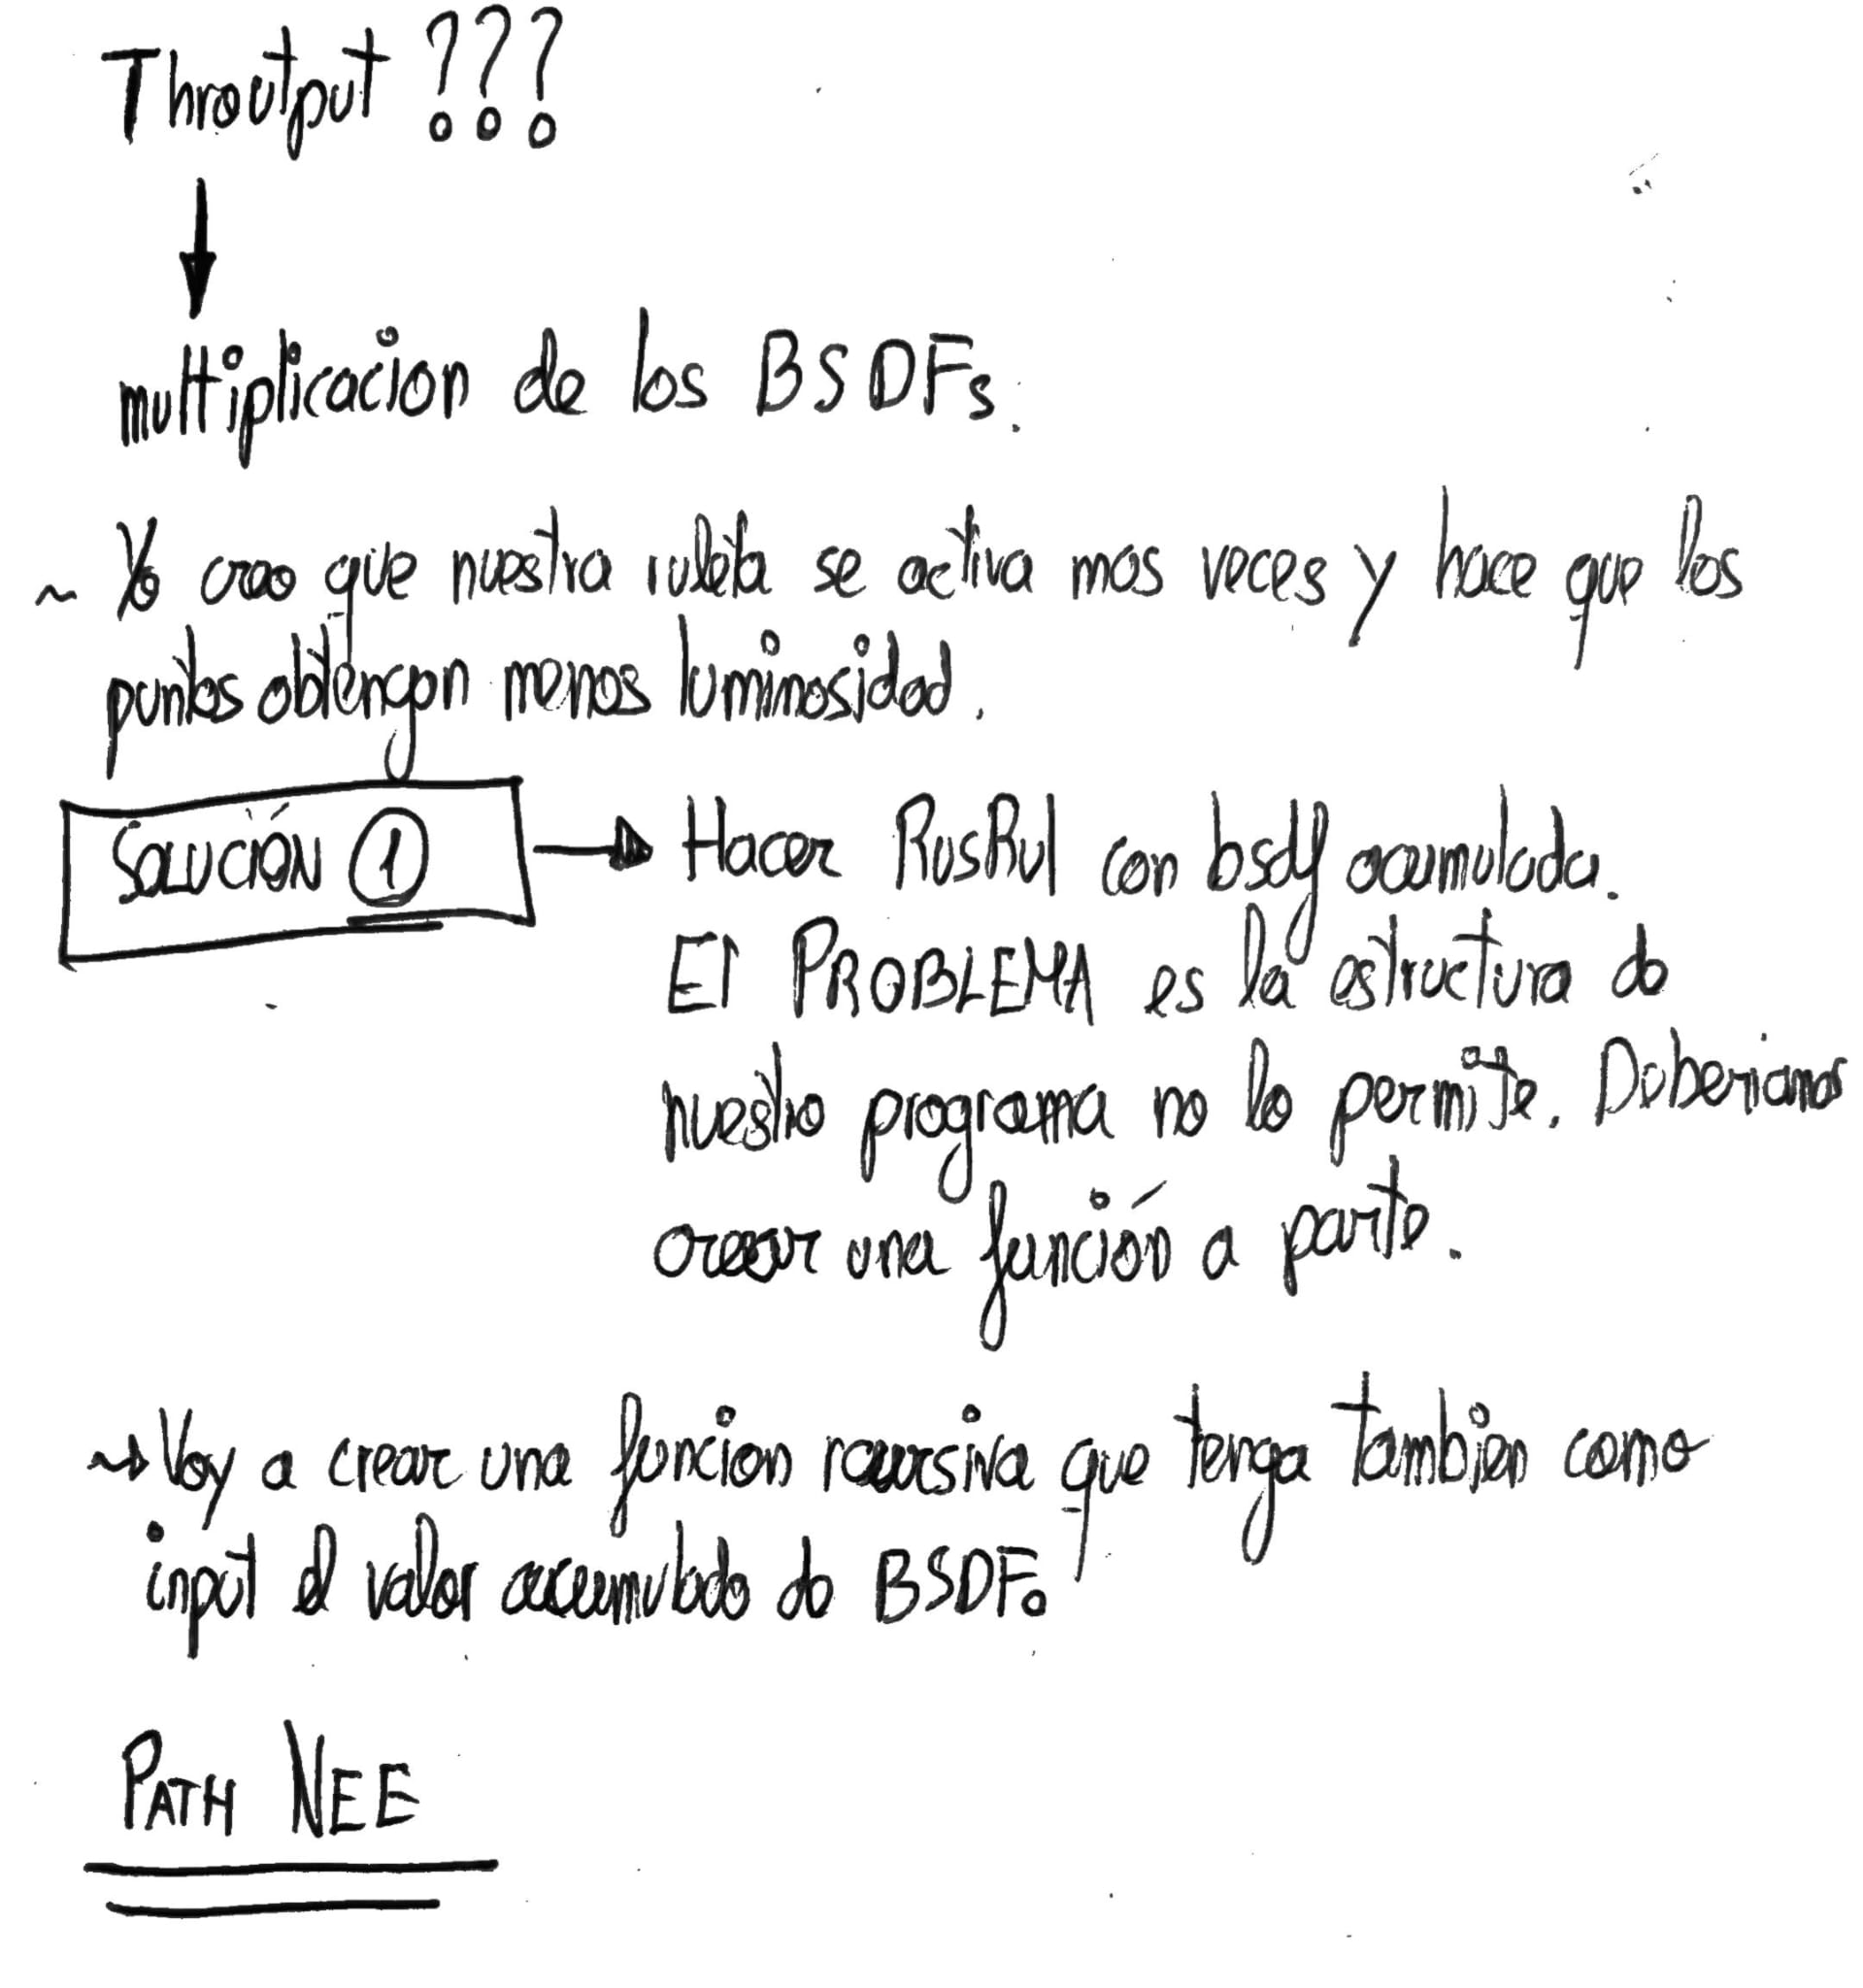 Throutput ???
multiplicacion de los BSDFs.
~ Yo creo que nuestra ruleta se activa mas veces y hace que los
puntos obtengan menos luminosidad.
SOLUCIÓN ① → Hacer RusRul con bsdf acumulada.
El PROBLEMA es la estructura de
nuestro programa no lo permite. Deberiamos
crear una función a parte.
~→ Voy a crear una funcion recursiva que tenga tambien como
input el valor acumulado de BSDF.
PATH NEE